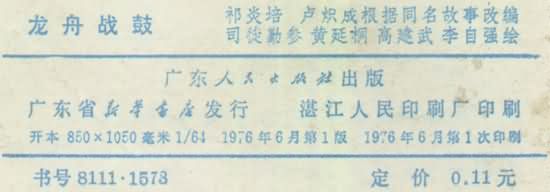 龙舟战鼓
祁炎培 卢炽成根据同名故事改编
司徒勤参 黄延桐 高建武 李自强绘
广东人民出版社出版
广东省新华书店发行 湛江人民印刷厂印刷
开本 850×1050毫米 1/64 1976年6月第1版 1976年6月第1次印刷
书号 8111·1573 定价 0.11元